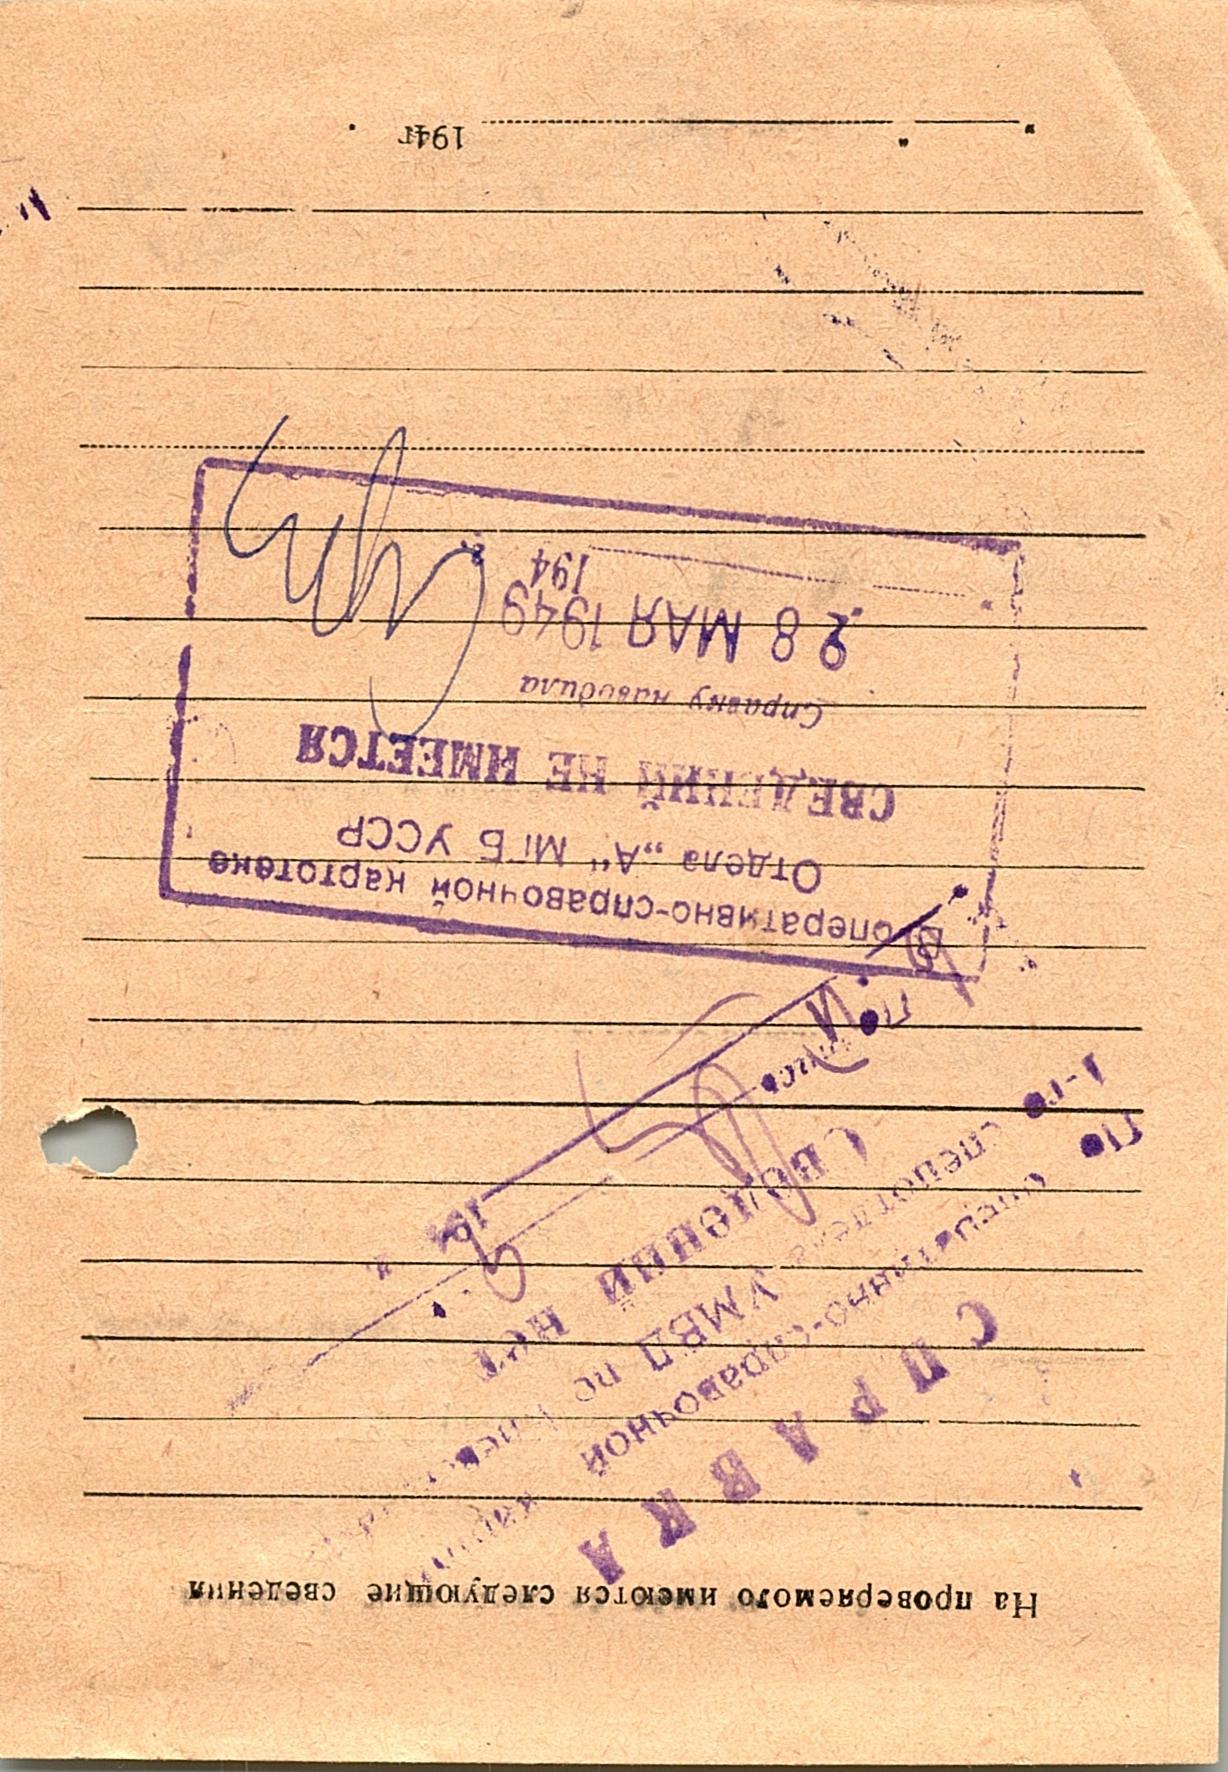 На проверяемого имеются следующие сведения
СПРАВКА
По оперативно-справочной
1-го спецотдела УМВД по
Сведений нет
В оперативно-справочной картотеке
Отдела „А“ МГБ УССР
СВЕДЕНИЙ НЕ ИМЕЕТСЯ
Справку наводила
28 МАЯ 1949
194 г.
" " 194 г.